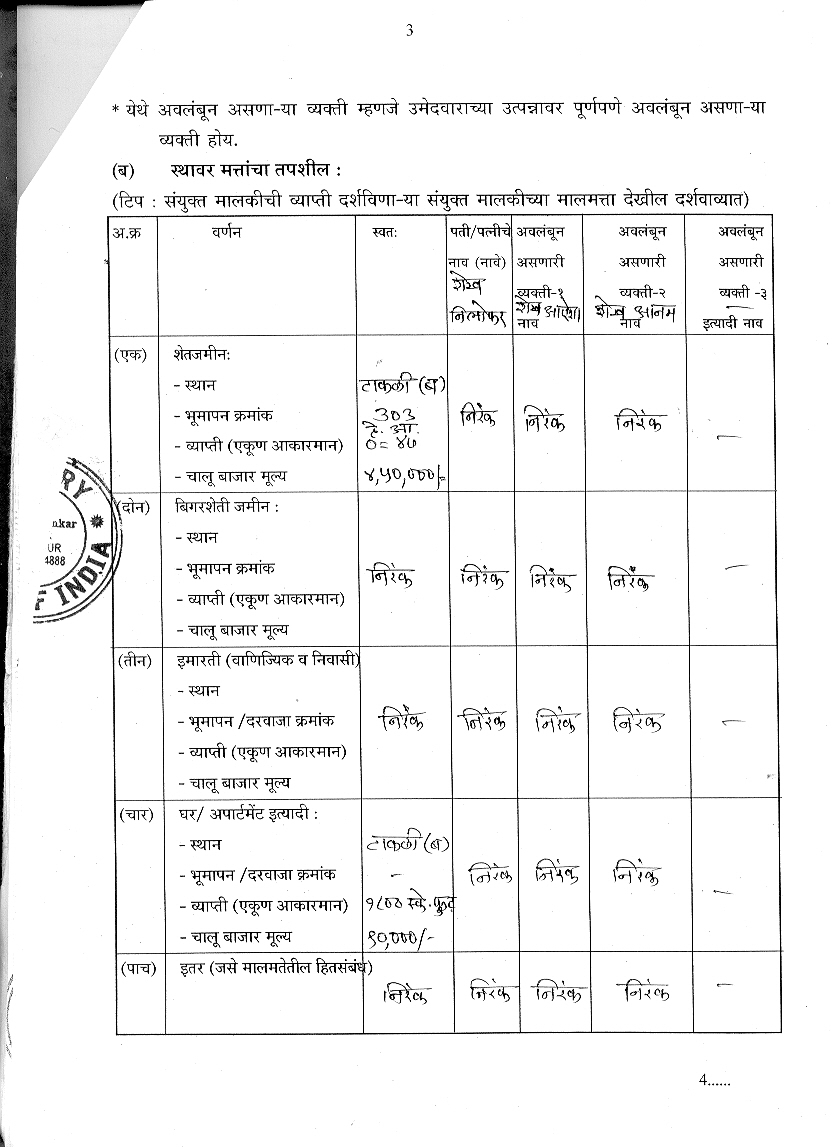 3
* येथे अवलंबून असणा-या व्यक्ती म्हणजे उमेदवाराच्या उत्पन्नावर पूर्णपणे अवलंबून असणा-या
व्यक्ती होय.
(ब) स्थावर मत्तांचा तपशील :
(टिप : संयुक्त मालकीची व्याप्ती दर्शविणा-या संयुक्त मालकीच्या मालमत्ता देखील दर्शवाव्यात)
अ.क्र वर्णन स्वतः पती/पत्नीचे अवलंबून अवलंबून अवलंबून
नाव (नावे) असणारी असणारी असणारी
शेख व्यक्ती-१ व्यक्ती-२ व्यक्ती -३
निलोफर शेख शेख अनम
नाव नाव इत्यादी नाव
(एक) शेतजमीनः
- स्थान टाकळी (ब)
- भूमापन क्रमांक 303 निरंक निरंक निरंक —
हे. आ.
- व्याप्ती (एकूण आकारमान) ०= ४७
- चालू बाजार मूल्य ४,५०,०००/=
(दोन) बिगरशेती जमीन :
- स्थान
- भूमापन क्रमांक निरंक निरंक निरंक निरंक —
- व्याप्ती (एकूण आकारमान)
- चालू बाजार मूल्य
(तीन) इमारती (वाणिज्यिक व निवासी)
- स्थान
- भूमापन /दरवाजा क्रमांक निरंक निरंक निरंक निरंक —
- व्याप्ती (एकूण आकारमान)
- चालू बाजार मूल्य
(चार) घर/ अपार्टमेंट इत्यादी :
- स्थान टाकळी (ब)
- भूमापन /दरवाजा क्रमांक - निरंक निरंक निरंक —
- व्याप्ती (एकूण आकारमान) १८०० स्के. फूट
- चालू बाजार मूल्य ९०,०००/-
(पाच) इतर (जसे मालमतेतील हितसंबंध)
निरंक निरंक निरंक निरंक —
RY
nkar
UR
4888
F INDIA
4......